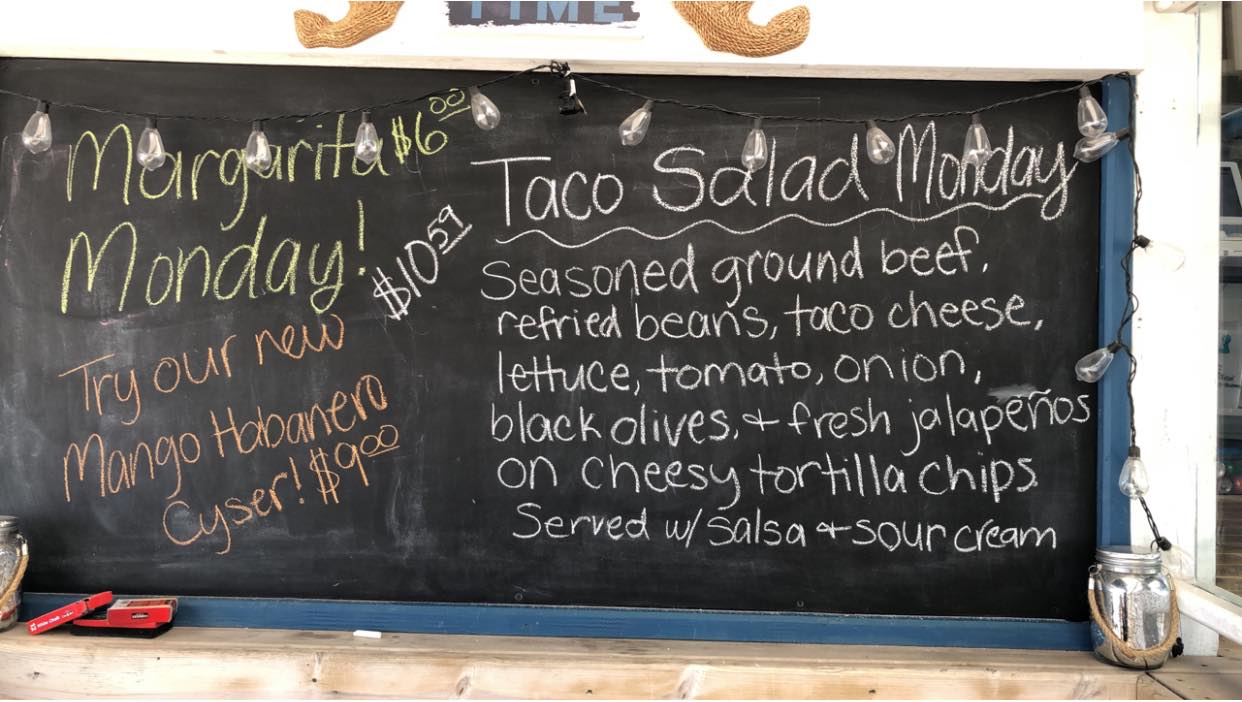 TIME
Margarita $6.00
Monday!
Try our new
Mango Habanero
Cyser! $9.00
$10.59
Taco Salad Monday
Seasoned ground beef,
refried beans, taco cheese,
lettuce, tomato, onion,
black olives, & fresh jalapeños
on cheesy tortilla chips
Served w/ salsa & sour cream
White Chalk